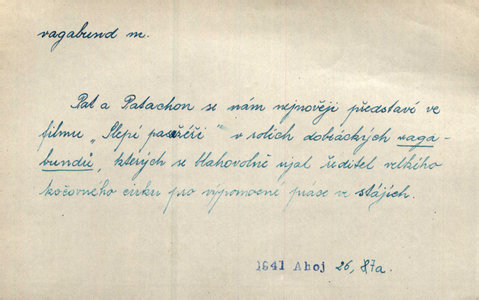 vagabund m.
Pat a Patachon se nám nejnověji představí ve
filmu „Slepí pasažéři" v rolích dobráckých vaga-
bundů, kterých se blahovolně ujal ředitel velkého
kočovného cirku pro výpomocné práce ve stájích.
1941 Ahoj 26, 87a.